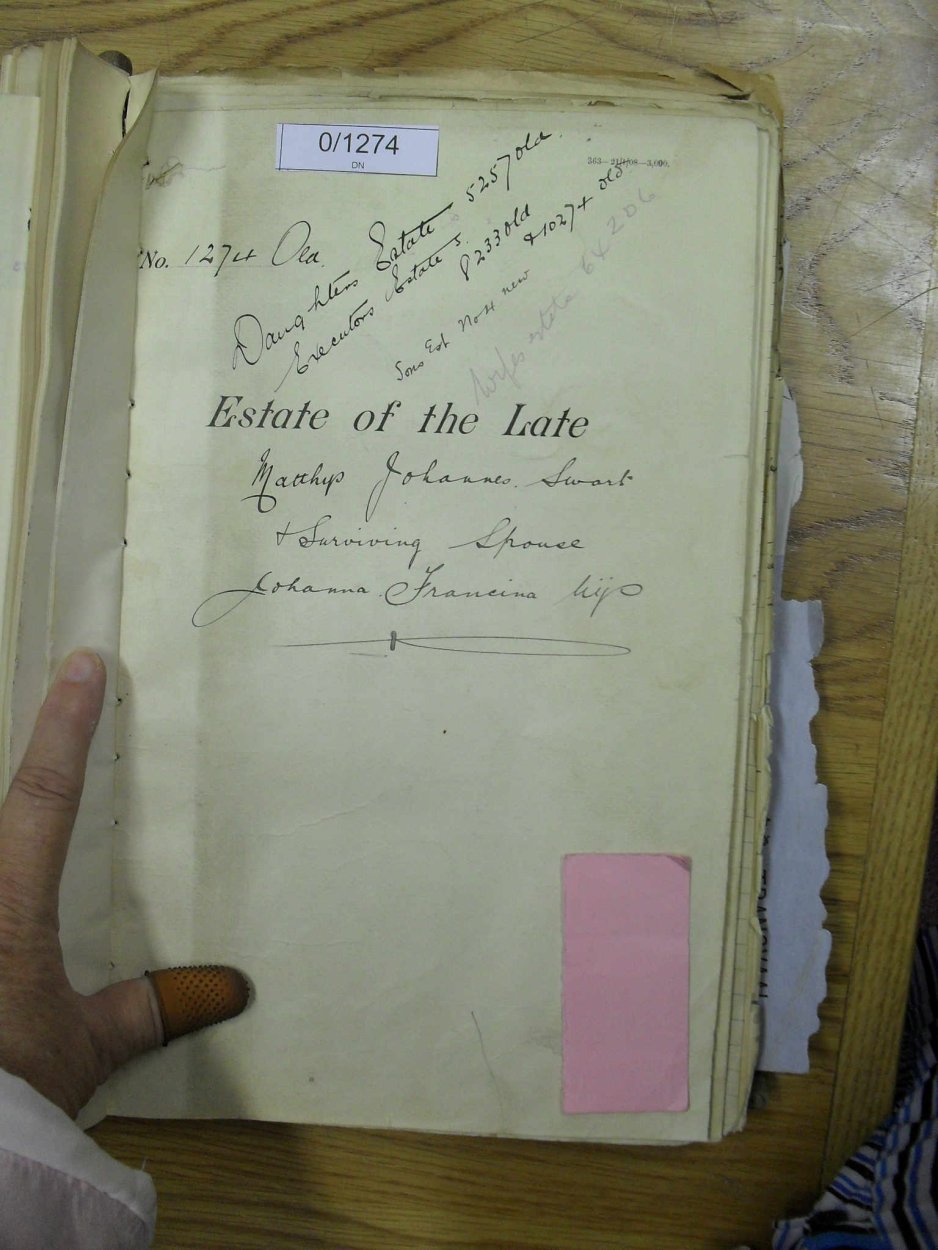 0/1274
DN
363—21/1/08—3,000.
No. 1274 Old
Daughters Estate 5257 Old.
Executors Estates 8233 Old
&10274 Old
Sons Est No 4 new
Wifes estate 64206
Estate of the Late
Matthys Johannes Swart
& Surviving Spouse
Johanna Francina